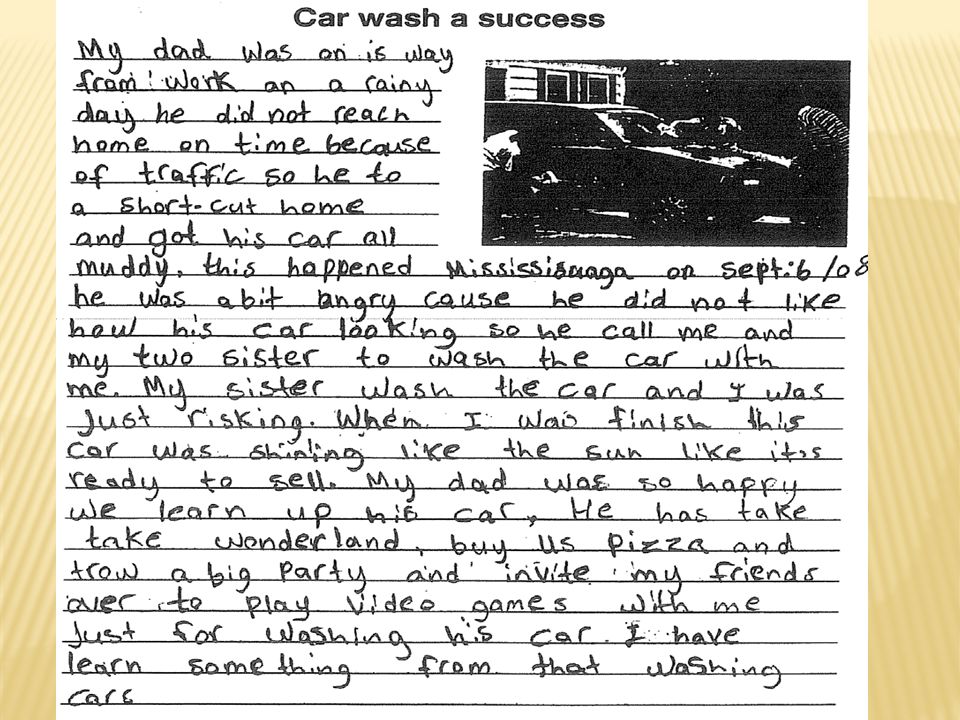 Car wash a success
My dad was on is way
from work on a rainy
day he did not reach
home on time because
of traffic so he to
a short-cut home
and got his car all
muddy. this happened Mississisauga on sept.6/08
he was abit angry cause he did not like
how his car looking so he call me and
my two sister to wash the car with
me. My sister wash the car and I was
Just risking. When I was finish this
car was shinling like the sun like it's
ready to sell. My dad was so happy
we learn up his car, He has take
take wonderland, buy us pizza and
trow a big party and invite my friends
over to play video games with me
Just for washing his car. I have
learn something from that washing
cars